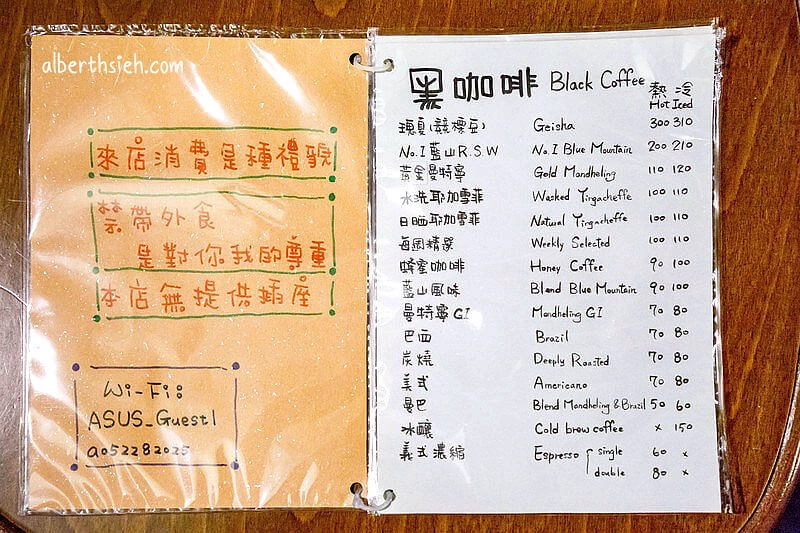 alberthsieh.com
來店消費是種禮貌
禁帶外食
是對你我的尊重
本店無提供插座
Wi-Fi:
ASUS_Guest1
a052282025
黑咖啡 Black Coffee 熱 冷
Hot Iced
瑰夏(競標豆) Geisha 300 310
No.1 藍山R.S.W No.1 Blue Mountain 200 210
黃金曼特寧 Gold Mandheling 110 120
水洗耶加雪菲 Washed Yirgacheffe 100 110
日晒耶加雪菲 Natural Yirgacheffe 100 110
每週精選 Weekly Selected 100 110
蜂蜜咖啡 Honey Coffee 90 100
藍山風味 Blend Blue Mountain 90 100
曼特寧G1 Mandheling G1 70 80
巴西 Brazil 70 80
炭燒 Deeply Roasted 70 80
美式 Americano 70 80
曼巴 Blend Mandheling & Brazil 50 60
冰釀 Cold brew coffee x 150
義式濃縮 Espresso single 60 x
double 80 x